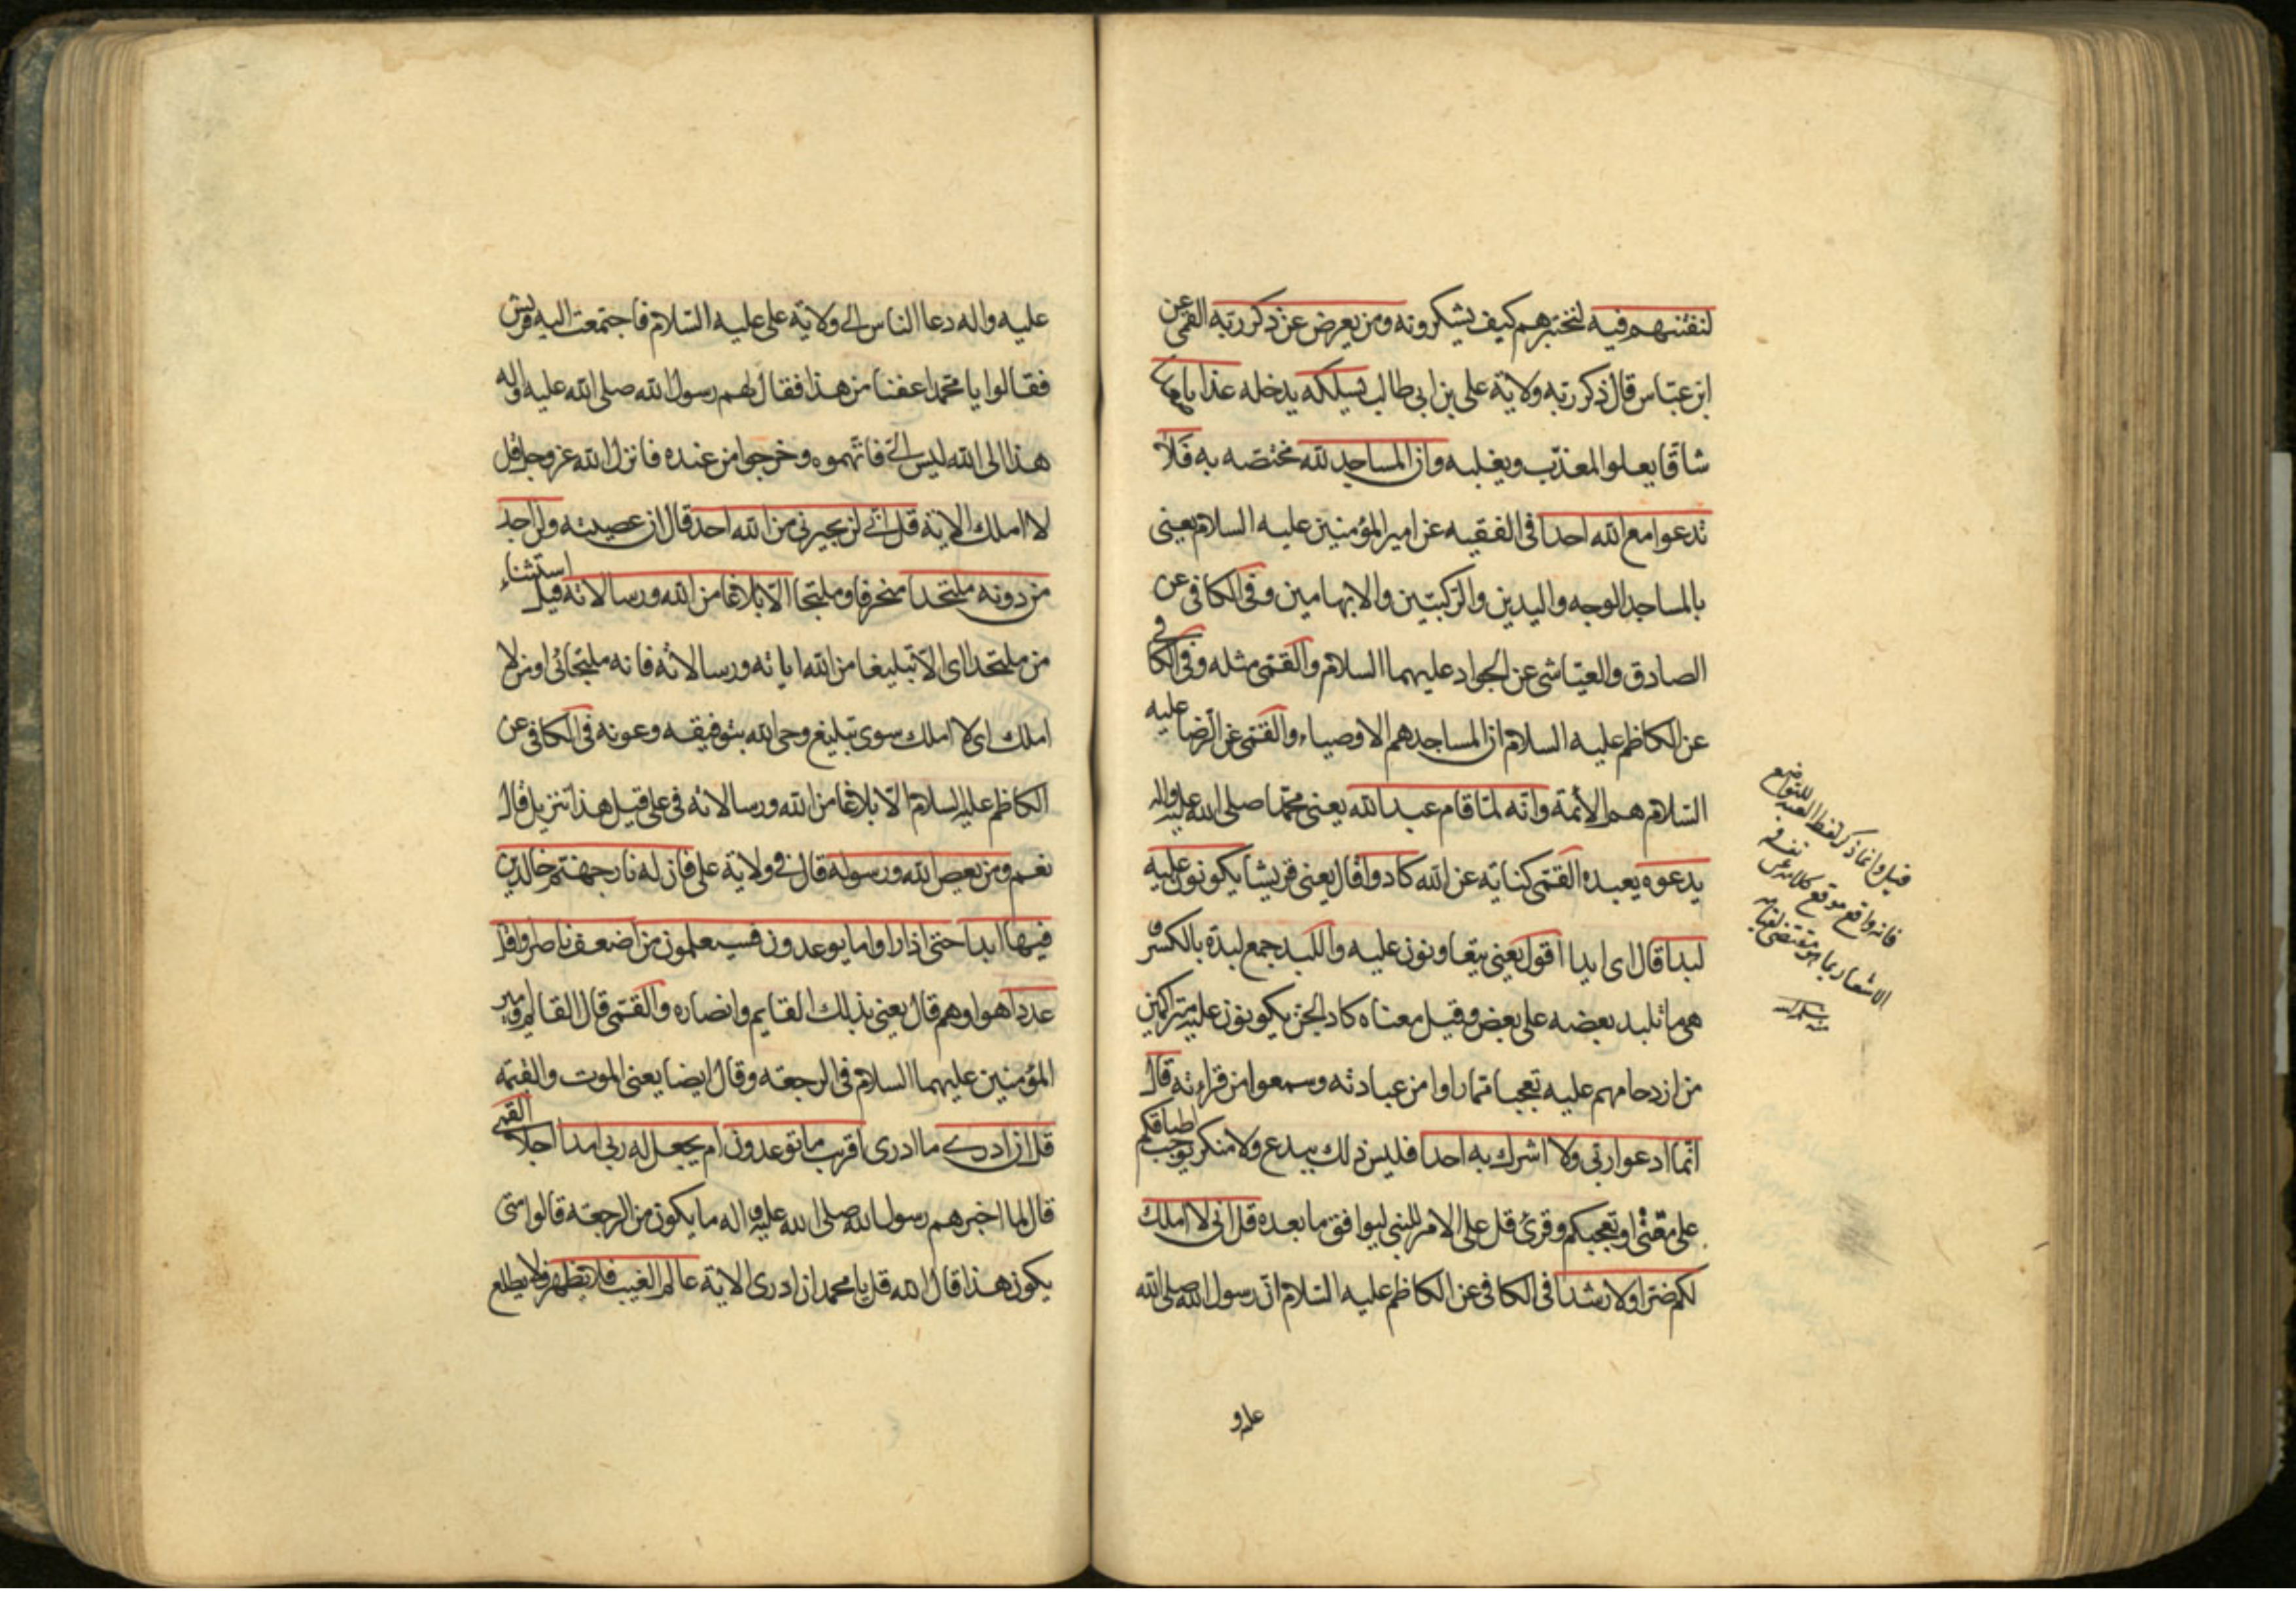 لنفتنهم فيه لنختبرهم كيف يشكرونه ومن يعرض عن ذكر ربه القمى عن
ابن عباس قال ذكر ربه ولاية على بن ابى طالب يسلكه يدخله عذابا صعدا
شاقا يعلو المعذب ويغلبه وان المساجد لله مختصه به فلا
تدعوا مع الله احدا فى الفقيه عن امير المؤمنين عليه السلام يعنى
بالمساجد الوجه واليدين والركبتين والابهامين وفى الكافى عن
الصادق والعياشى عن الجواد عليهما السلام والقمى مثله وفى الكافى
عن الكاظم عليه السلام ان المساجد هم الاوصياء والقمى عن الرضا عليه
السلام هم الأئمة وانه لما قام عبد الله يعنى محمدا صلى الله عليه واله
يدعوه يعبده القمى كناية عن الله كادوا قال يعنى قريشا يكونون عليه
لبدا قال اى ايدا اقول يعنى يتعاونون عليه واللبد جمع لبدة بالكسر و
هى ما تلبد بعضه على بعض وقيل معناه كاد الجن يكونون عليه متراكمين
من ازدحامهم عليه تعجبا مما راوا من عبادته وسمعوا من قراءته قال
انما ادعوا ربى ولا اشرك به احدا فليس ذلك ببدع ولا منكر يوجب اطباقكم
على مقتى او تعجبكم وقرئ قل على الامر للنبى ليوافق ما بعده قل انى لا املك
لكم ضرا ولا رشدا فى الكافى عن الكاظم عليه السلام ان رسول الله صلى الله
قيل وانما ذكر لفظ العبد للتواضع
فانه واقع موقع كلامه عن نفسه
الاشعار بما هو مقتضى لقيامه
منه سلمه الله
عليه و
عليه واله دعا الناس الى ولاية على عليه السلام فاجتمعت اليه قريش
فقالوا يا محمد اعفنا من هذا فقال لهم رسول الله صلى الله عليه واله
هذا الى الله ليس الى فاتهموه وخرجوا من عنده فانزل الله عز وجل قل
لا املك الاية قل انى لن يجيرنى من الله احد قال ان عصيته ولن اجد
من دونه ملتحدا منحرفا وملتجا الا بلاغا من الله ورسالاته قيل استثناء
من ملتحدا اى الا تبليغا من الله اياته ورسالاته فانه ملتجائى او من لا
املك اى لا املك سوى تبليغ وحى الله بتوفيقه وعونه فى الكافى عن
الكاظم عليه السلام الا بلاغا من الله ورسالاته فى على قيل هذا تنزيل قال
نعم ومن يعص الله ورسوله قال فى ولاية على فان له نار جهنم خالدين
فيها ابدا حتى اذا راوا ما يوعدون فسيعلمون من اضعف ناصرا واقل
عددا هوا وهم قال يعنى بذلك القايم وانصاره والقمى قال القايم وامير
المؤمنين عليهما السلام فى الرجعة وقال ايضا يعنى الموت والقيمه
قل ان ادرى ما ادرى اقريب ما توعدون ام يجعل له ربى امدا اجلا القمى
قال لما اخبرهم رسول الله صلى الله عليه واله ما يكون من الرجعة قالوا متى
يكون هذا قال الله قل يا محمد ان ادرى الاية عالم الغيب فلا يظهر ولا يطلع